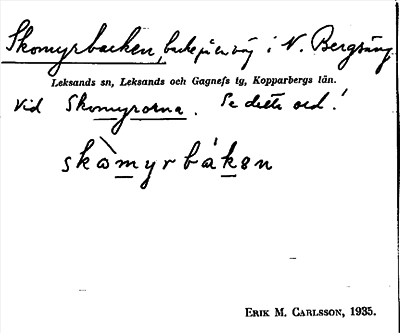 Skomyrbacken, backe på en väg i N. Bergsäng
Leksands sn, Leksands och Gagnefs tg, Kopparbergs län.
Vid Skomyrorna. Se detta ord!
skò̀myrbákən
ERIK M. CARLSSON, 1935.